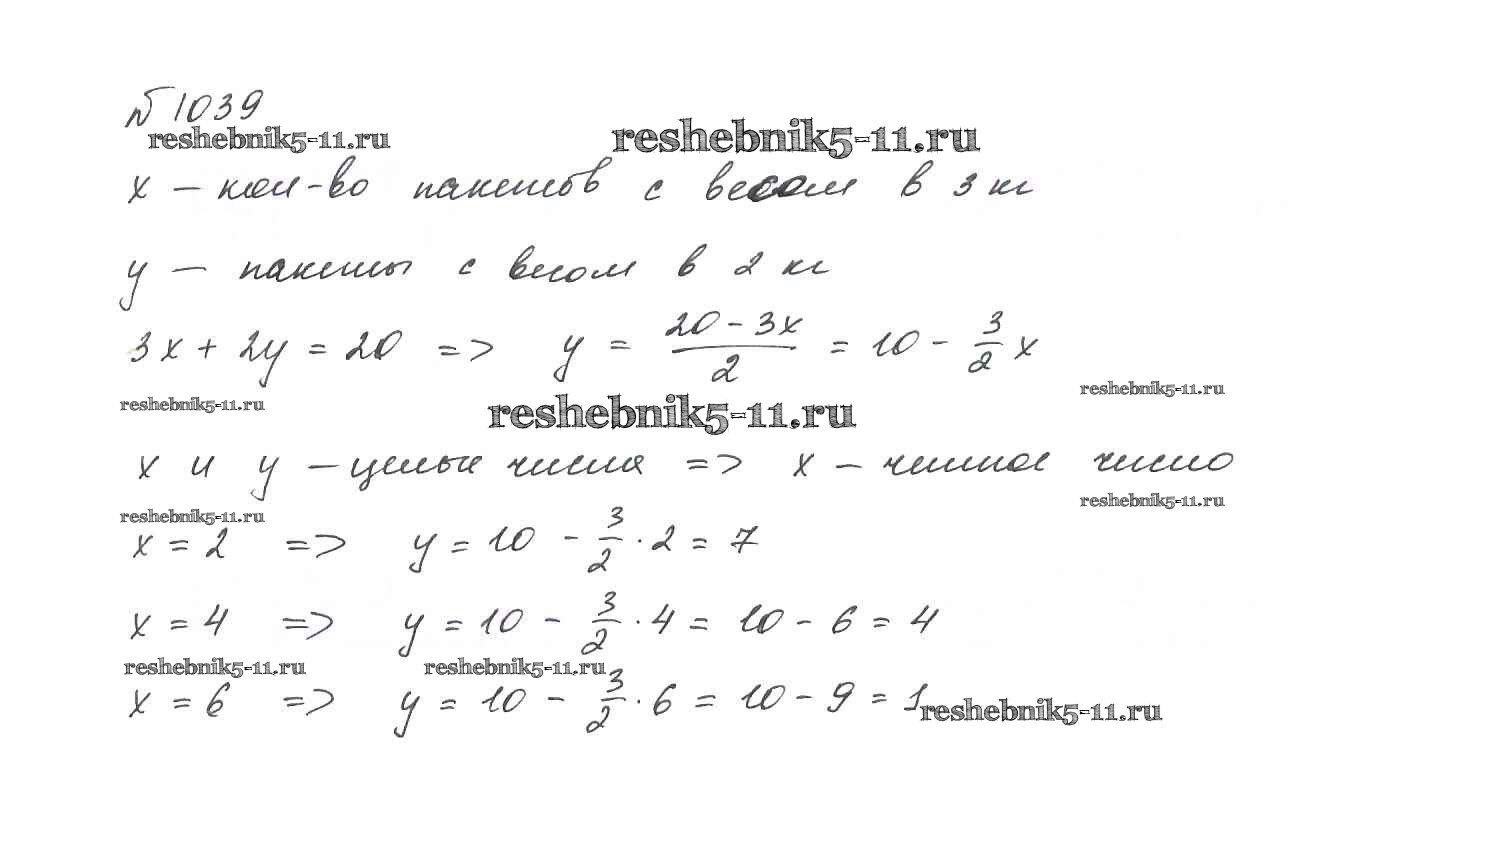 №1039
reshebnik5-11.ru reshebnik5-11.ru
x – кол-во пакетов с весом в 3 кг
y – пакеты с весом в 2 кг
3x + 2y = 20 => y = (20 - 3x)/2 = 10 - 3/2 x
reshebnik5-11.ru reshebnik5-11.ru reshebnik5-11.ru
x и y – целые числа => x – четное число
reshebnik5-11.ru reshebnik5-11.ru
x = 2 => y = 10 - 3/2 · 2 = 7
x = 4 => y = 10 - 3/2 · 4 = 10 - 6 = 4
reshebnik5-11.ru reshebnik5-11.ru
x = 6 => y = 10 - 3/2 · 6 = 10 - 9 = 1
reshebnik5-11.ru